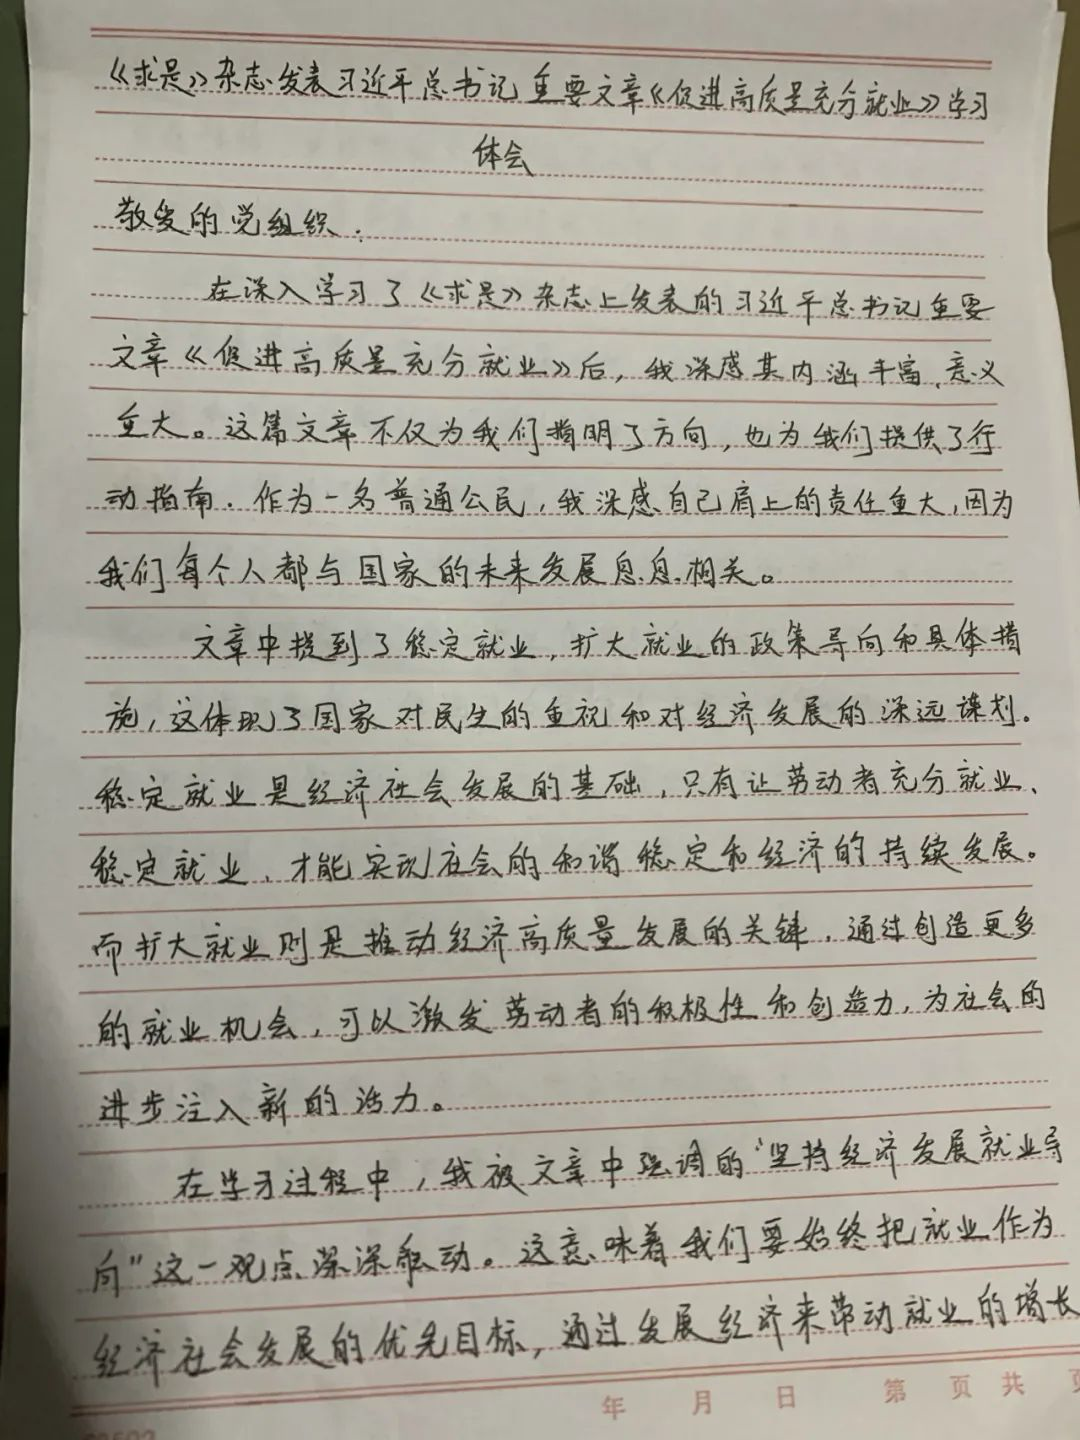 《求是》杂志发表习近平总书记重要文章《促进高质量充分就业》学习
体会
敬爱的党组织.
在深入学习了《求是》杂志上发表的习近平总书记重要
文章《促进高质量充分就业》后,我深感其内涵丰富、意义
重大。这篇文章不仅为我们指明了方向,也为我们提供了行
动指南.作为一名普通公民,我深感自己肩上的责任重大,因为
我们每个人都与国家的未来发展息息相关。
文章中提到了稳定就业,扩大就业的政策导向和具体措
施,这体现了国家对民生的重视和对经济发展的深远谋划.
稳定就业是经济社会发展的基础,只有让劳动者充分就业、
稳定就业,才能实现社会的和谐稳定和经济的持续发展。
而扩大就业则是推动经济高质量发展的关键,通过创造更多
的就业机会,可以激发劳动者的积极性和创造力,为社会的
进步注入新的活力。
在学习过程中,我被文章中强调的“坚持经济发展就业导
向”这一观点深深触动。这意味着我们要始终把就业作为
经济社会发展的优先目标,通过发展经济来带动就业的增长
年 月 日 第 页 共 页